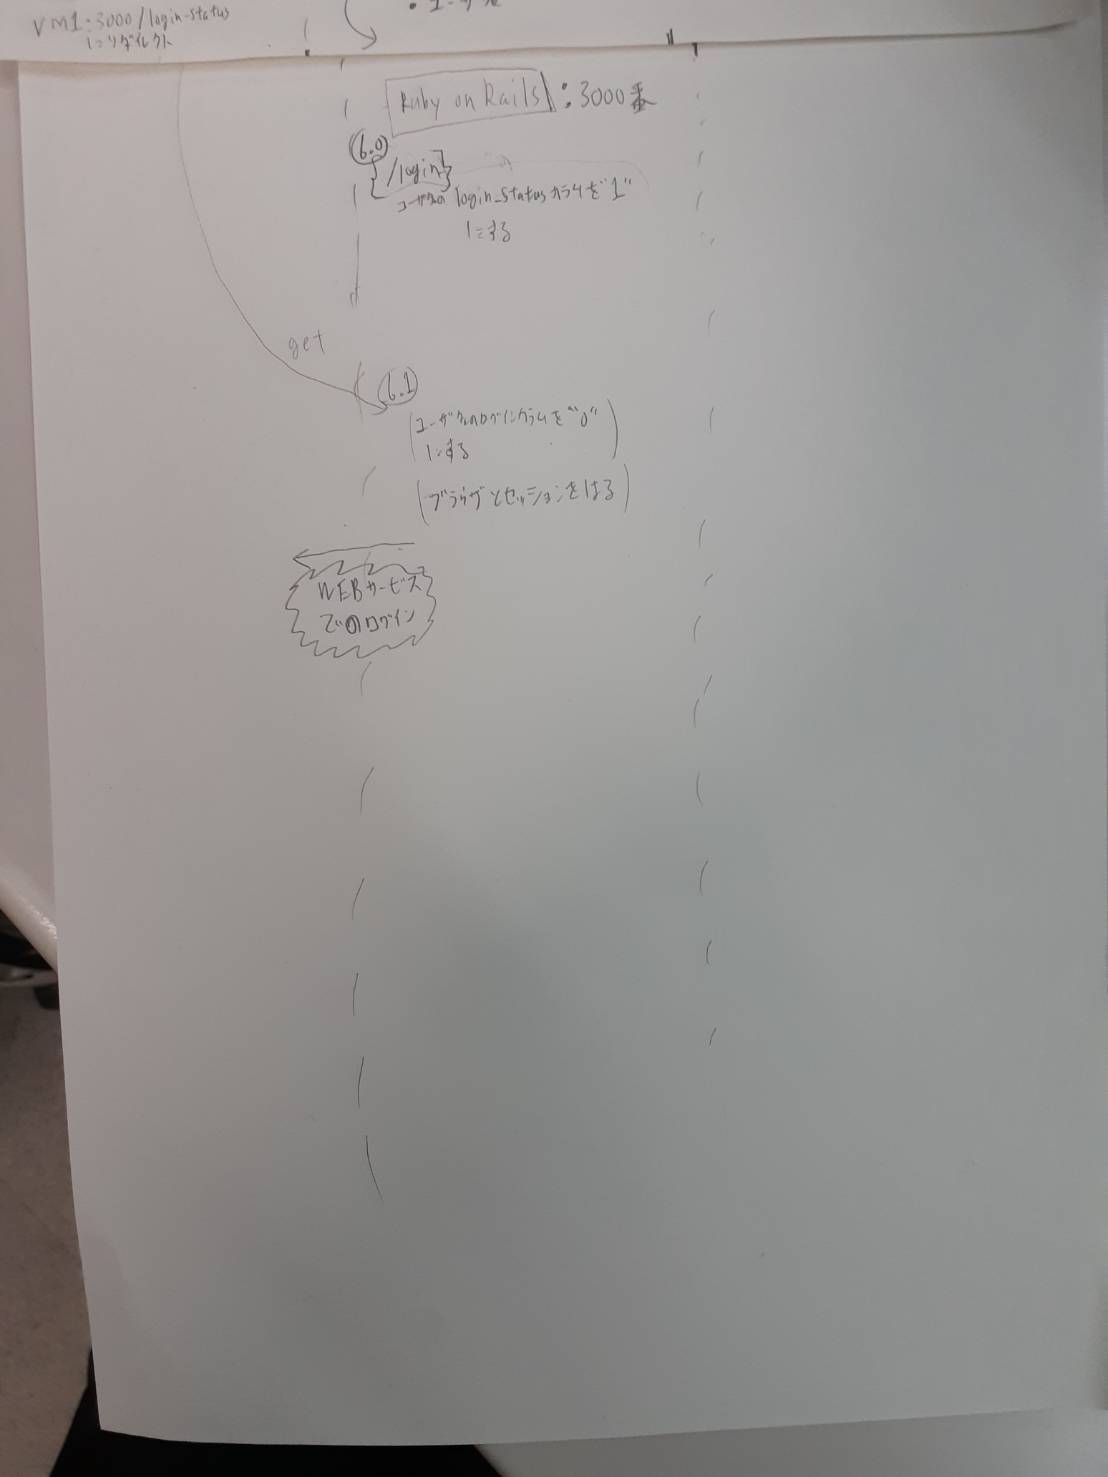 VM1:3000/login-status
にリダイレクト
・ユーザ
Ruby on Rails :3000番
6.0
/login
ユーザの login_statusカラムを"1"
にする
get
6.1
ユーザのログインカラムを"0"
にする
ブラウザとセッションをはる
WEBサービス
でのログイン